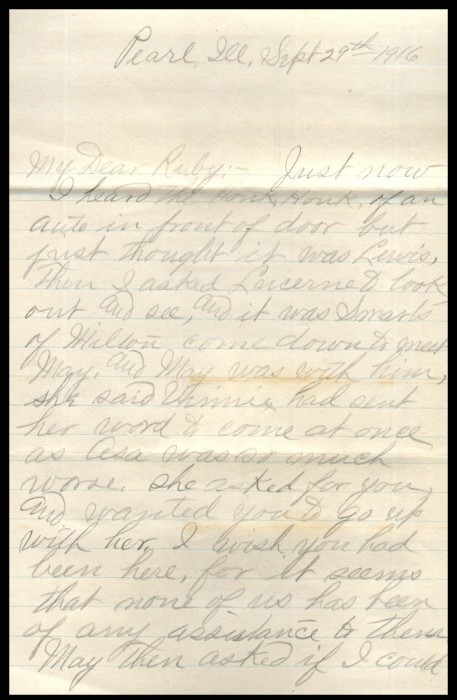 Pearl, Ill, Sept 29th 1916
My Dear Ruby:- Just now
I heard the honk, honk, of an
auto in front of door but
just thought it was Lewis,
then I asked Lucerne to look
out and see, and it was Smarts
of Milton come down to meet
May, and May was with him,
she said Vinnie had sent
her word to come at once
as Asa was so much
worse. she asked for you
and wanted you to go up
with her, I wish you had
been here, for it seems
that none of us has been
of any assistance to them
May then asked if I could